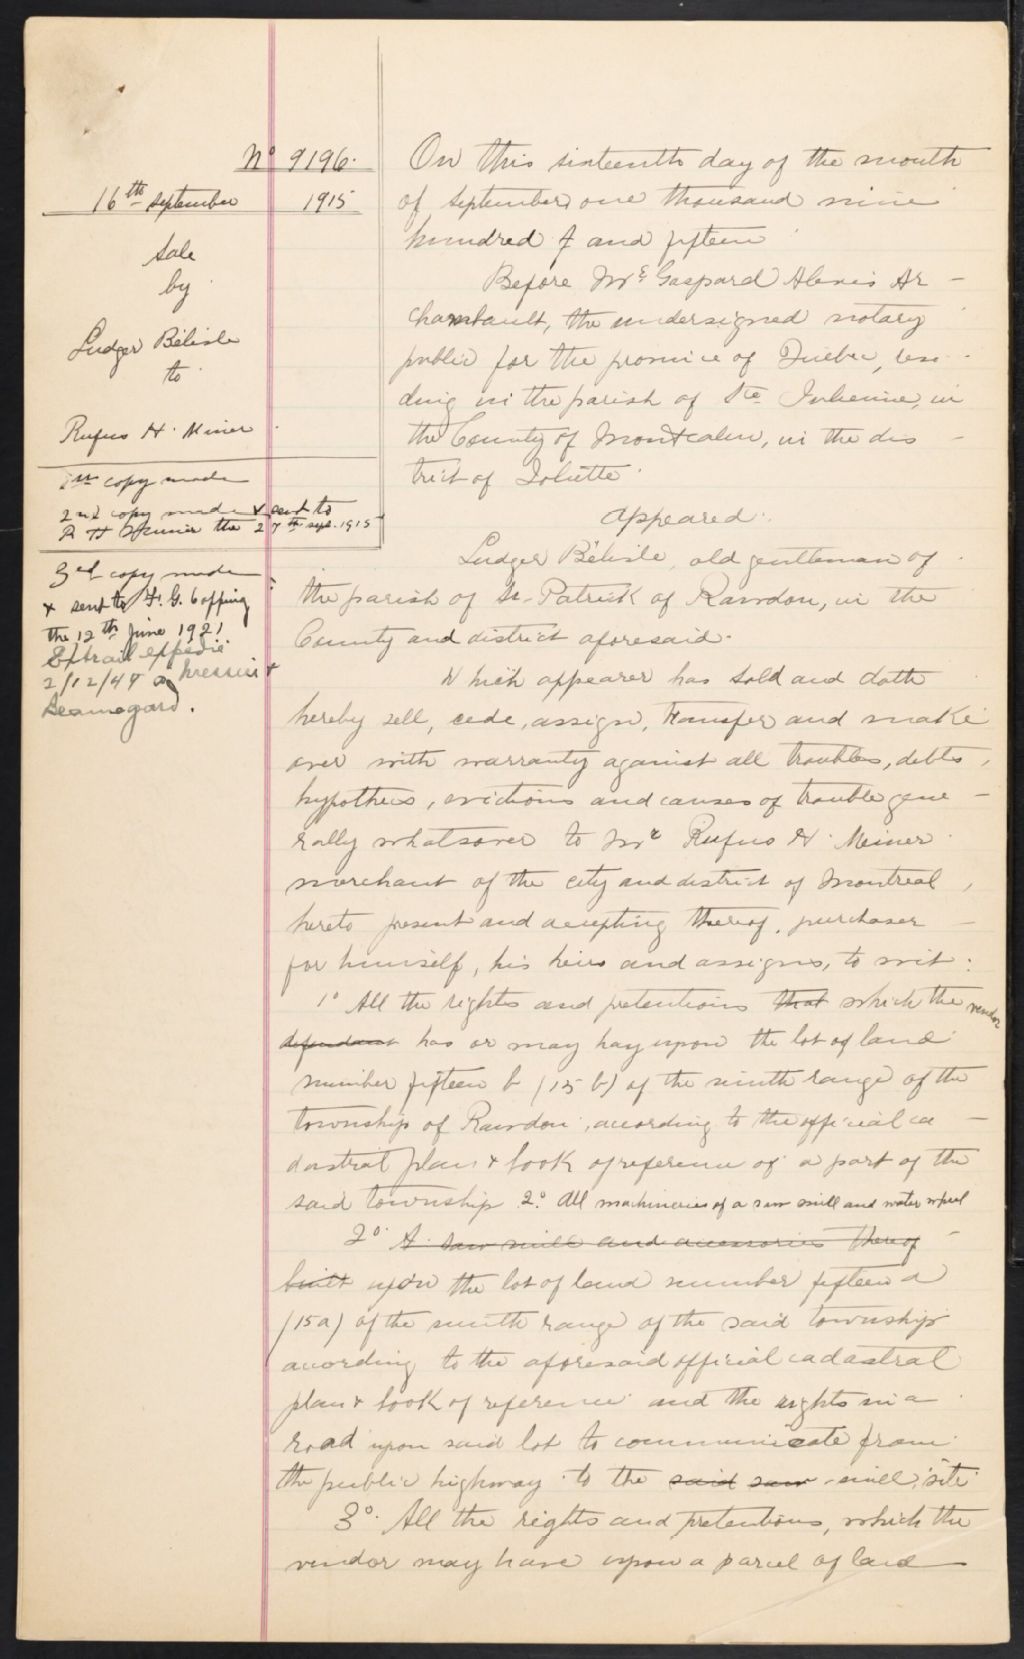 No 9196.
16th september 1915
Sale
by
Ludger Bélisle
to
Rufus H. Miner
1st copy made
2nd copy made & sent to
R H Minier the 27th sept. 1915
3rd copy made
& sent to F. G. Copping
the 12th June 1921.
Extrait expedié
2/12/44 a
Beauregard.
On this sixteenth day of the month
of September one thousand nine
hundred & and fifteen
Before Mr Gaspard Alexis Ar-
chambault, the undersigned notary
public for the province of Quebec, resi-
ding in the parish of Ste Julienne, in
the County of Montcalm, in the dis-
trict of Joliette.
appeared:
Ludger Bélisle, old gentleman of
the parish of St-Patrick of Rawdon, in the
County and district aforesaid.
Which appearer has sold and doth
hereby sell, cede, assign, transfer and make
over with warranty against all troubles, debts,
hypothecs, evictions and causes of trouble gene-
rally whatsover to Mr Rufus H. Meiner
merchant of the city and district of Montreal,
hereto present and accepting thereof, purchaser
for himself, his heirs and assigns, to wit:
1° All the rights and pretentions that which the vendor
defendant has or may hay upon the lot of land
number fifteen b (15 b) of the ninth range of the
township of Rawdon, according to the official ca-
dastral plan & book of reference of a part of the
said township 2° All machineries of a saw mill and water wheel
2° A saw mill and accessories thereof
built upon the lot of land number fifteen a
(15a) of the ninth range of the said township
according to the aforesaid official cadastral
plan & book of reference and the rights in a
road upon said lot to communicate from
the public highway to the said saw-mill site
3° All the rights and pretentions, which the
vendor may have upon a parcel of land